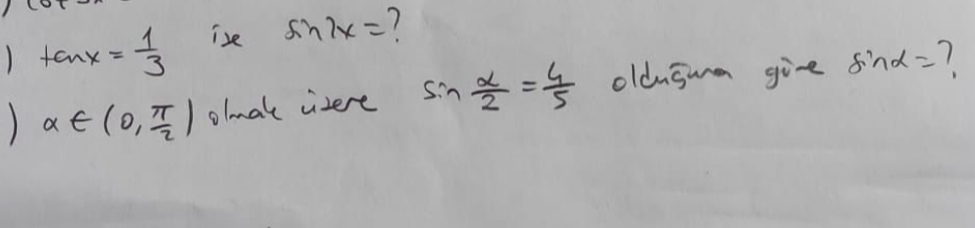 ) tanx = 1/3 ise sin2x = ?
) α ∈ (0, π/2) olmak üzere sin α/2 = 4/5 olduğuna göre sinα = ?